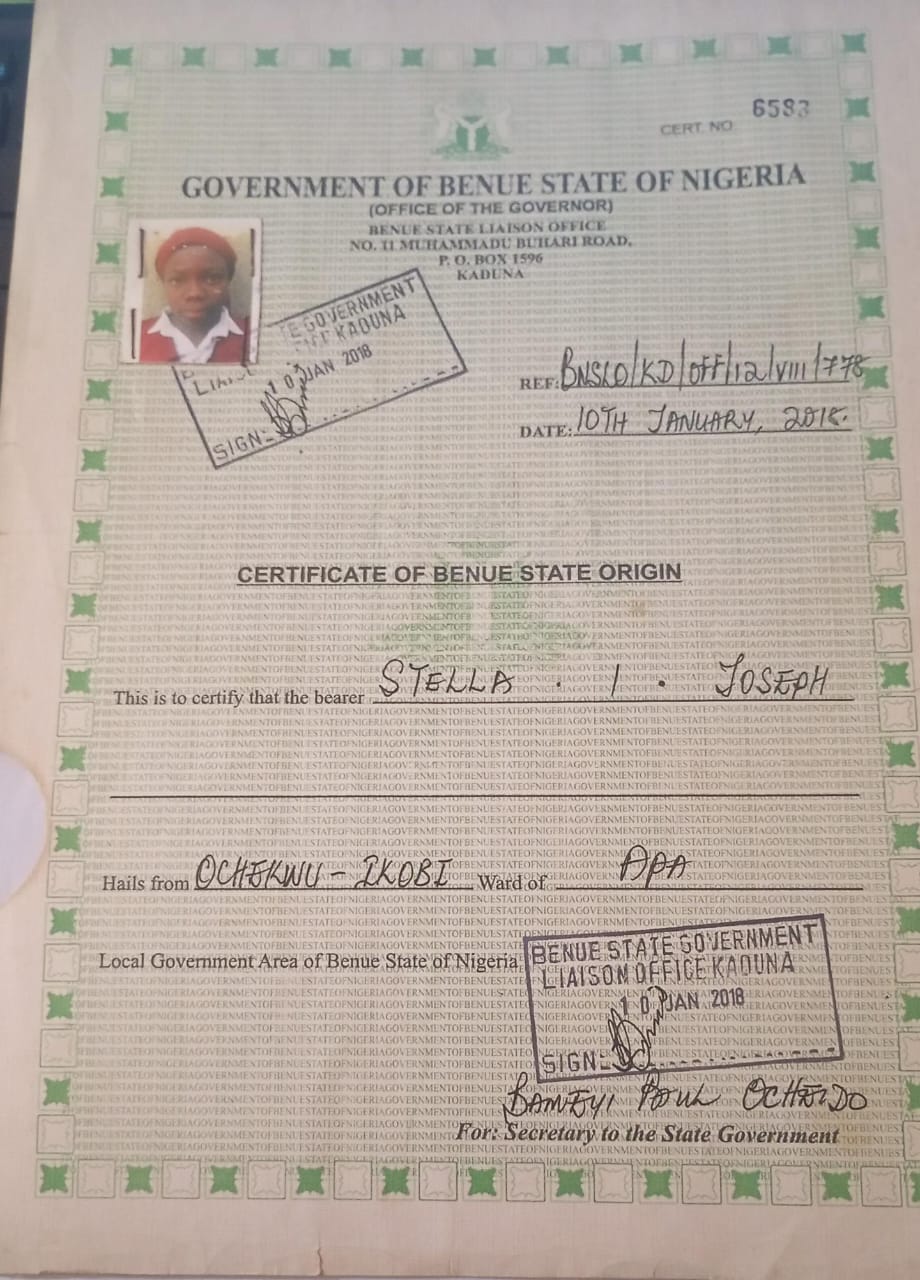 6583
CERT. NO
GOVERNMENT OF BENUE STATE OF NIGERIA
(OFFICE OF THE GOVERNOR)
BENUE STATE LIAISON OFFICE
NO. 11 MUHAMMADU BUHARI ROAD,
P. O. BOX 1596
KADUNA
E GOVERNMENT
KADUNA
10 JAN 2018
SIGN
REF: BNSLO/KD/OFF/12/VIII/778
DATE: 10TH JANUARY, 2018.
CERTIFICATE OF BENUE STATE ORIGIN
This is to certify that the bearer STELLA . I . JOSEPH
Hails from OCHEKWU - IKOBI Ward of APA
Local Government Area of Benue State of Nigeria
BENUE STATE GOVERNMENT
LIAISON OFFICE KADUNA
10 JAN 2018
SIGN
PAUL
For: Secretary to the State Government